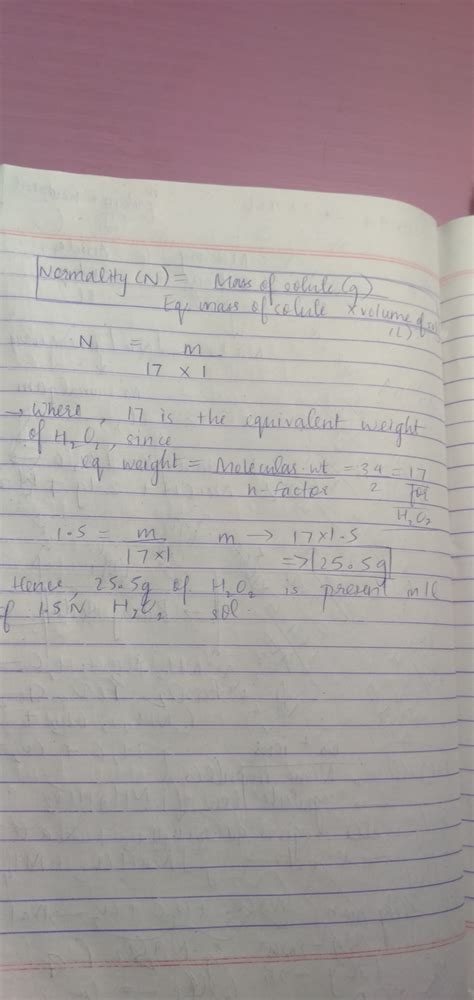 Normality (N) = Mass of solute (g)
Eq. mass of solute × volume of
(L)
N = m
17 × 1
→ Where, 17 is the equivalent weight
of H₂O₂, since
eq weight = Molecular wt = 34 = 17
n-factor 2 for
H₂O₂
1.5 = m m → 17×1.5
17×1 => 25.5g
Hence, 25.5g of H₂O₂ is present in 1L
of 1.5N H₂O₂ sol.